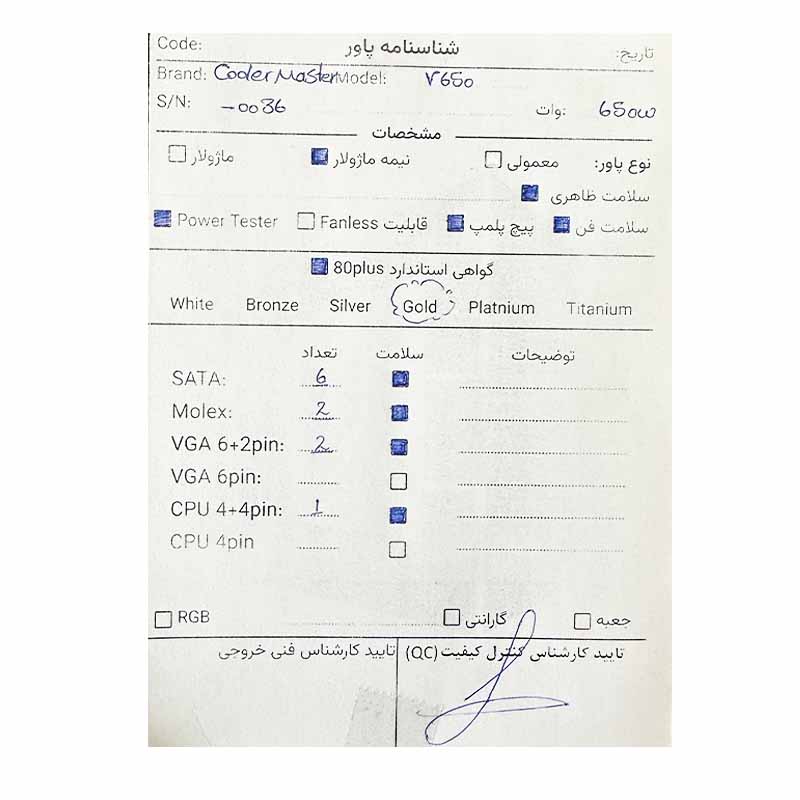 Code: شناسنامه پاور تاریخ:
Brand: Cooler Master Model: V650
S/N: -0036 وات: 650W
مشخصات
نوع پاور: معمولی نیمه ماژولار ماژولار
سلامت ظاهری
سلامت فن پیچ پلمپ قابلیت Fanless Power Tester
گواهی استاندارد 80plus
White Bronze Silver Gold Platnium Titanium
تعداد سلامت توضیحات
SATA: 6
Molex: 2
VGA 6+2pin: 2
VGA 6pin:
CPU 4+4pin: 1
CPU 4pin
RGB گارانتی جعبه
تایید کارشناس کنترل کیفیت (QC) تایید کارشناس فنی خروجی